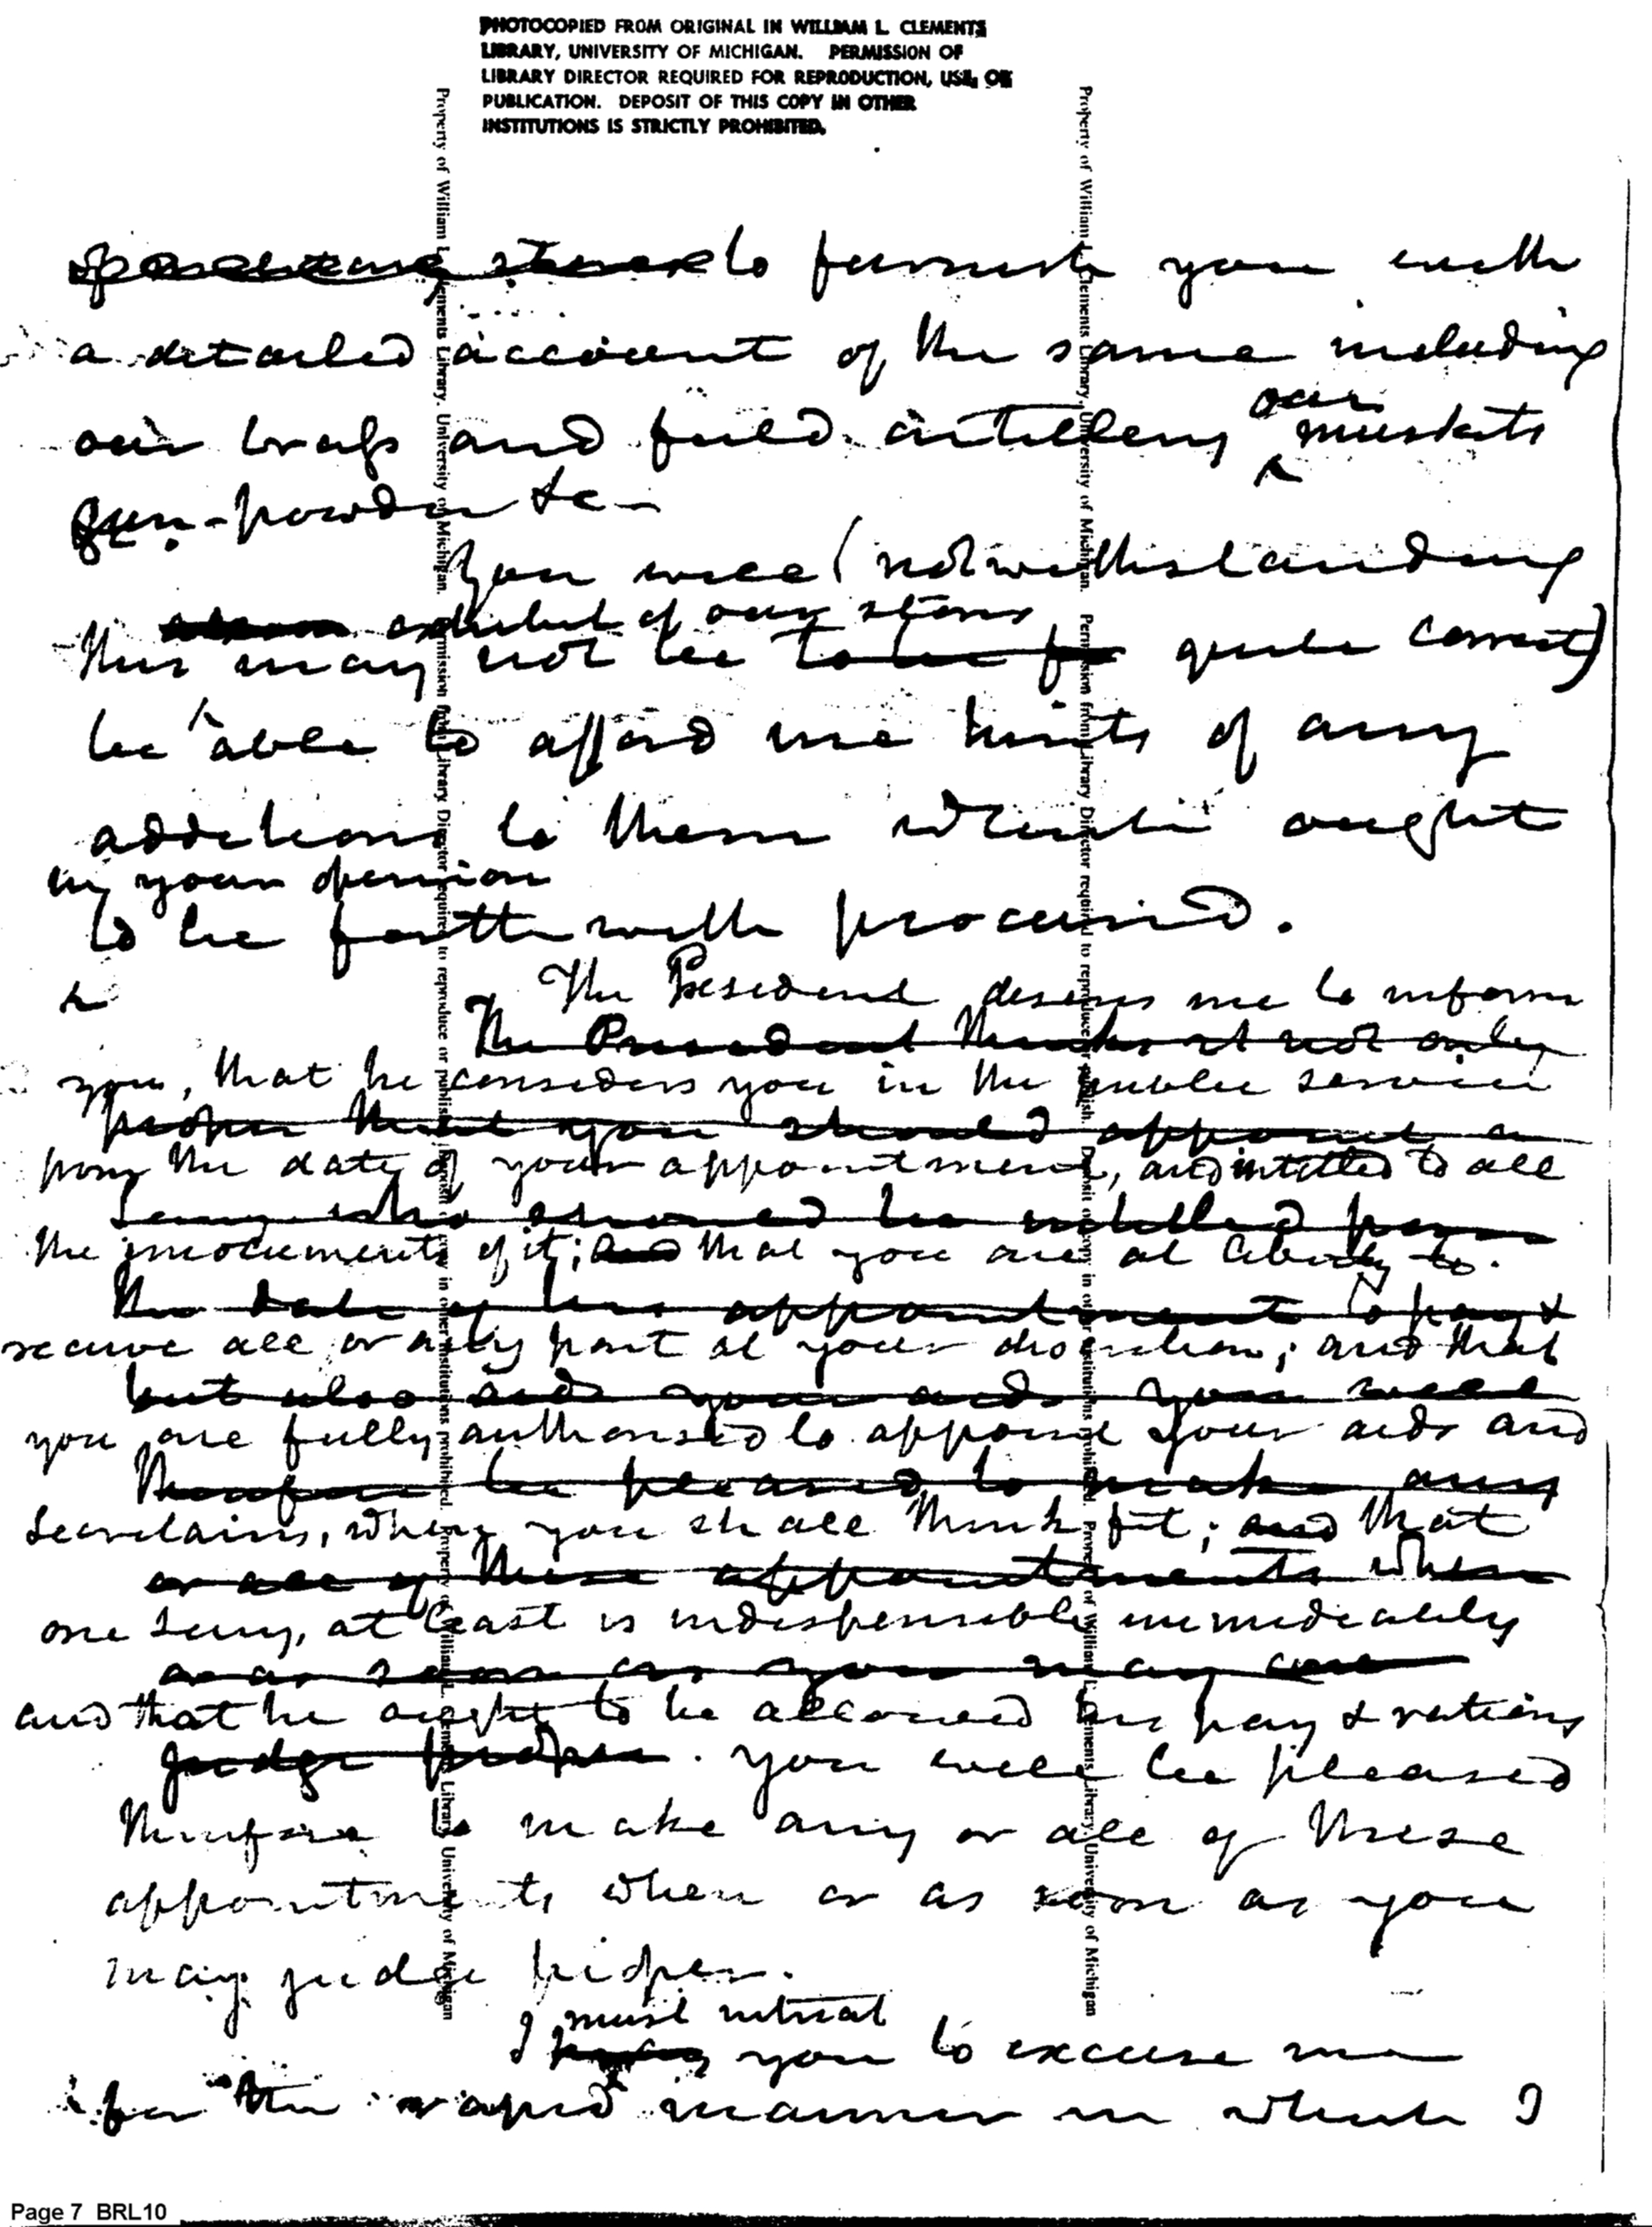 PHOTOCOPIED FROM ORIGINAL IN WILLIAM L. CLEMENTS
LIBRARY, UNIVERSITY OF MICHIGAN. PERMISSION OF
LIBRARY DIRECTOR REQUIRED FOR REPRODUCTION, USE, OR
PUBLICATION. DEPOSIT OF THIS COPY IN OTHER
INSTITUTIONS IS STRICTLY PROHIBITED.
Property of William L. Clements Library, University of Michigan. Permission from Library Director required to reproduce or publish. Deposit of copy in other institutions prohibited. Property of William L. Clements Library, University of Michigan
Property of William L. Clements Library, University of Michigan. Permission from Library Director required to reproduce or publish. Deposit of copy in other institutions prohibited. Property of William L. Clements Library, University of Michigan
to furnish you with
a detailed account of the same including
our
our brass and field artillery muskets
gun-powder &c—
You will (notwithstanding
exhibit of our stores
this may not be to be quite correct)
be able to afford me hints of any
additions to them which ought
in your opinion
to be forthwith procured.
The President desires me to inform
The President thinks it not only
you, that he considers you in the public service
proper that you should appoint a
from the date of your appointment, and intitled to all
Secy. who should be intitled from
the emoluments of it; and that you are at liberty to
the date of his appointment to pay &
receive all or any part at your discretion; and that
but also aids your aids you will
you are fully authorised to appoint your aids and
therefore be pleased to make any
Secretaries, when you shall think fit; and that
or all of these appointments when
one Secy, at least is indispensible immediately
or as soon as you may
and that he ought to be allowed his pay & rations
judge proper. you will be pleased
therefore to make any or all of these
appointments when or as soon as you
may judge proper.
must intreat
I you to excuse me
for the rapid manner in which I
Page 7 BRL10